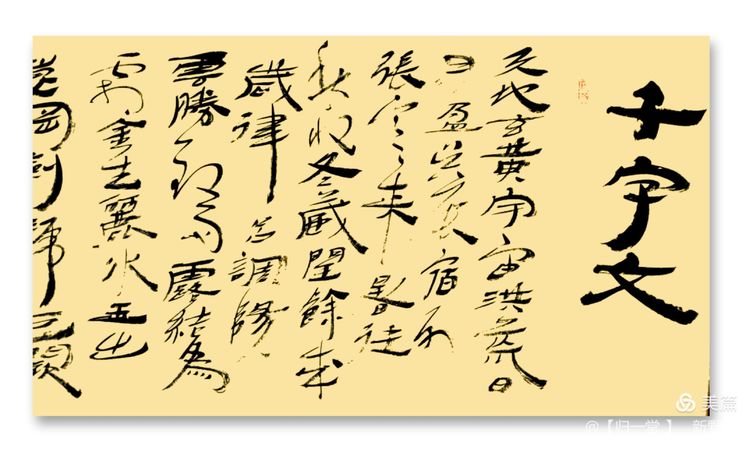 千字文
天地玄黄宇宙洪荒日
月盈昃辰宿列
張寒来暑往
秋收冬藏閏餘成
歲律吕調陽
雲騰致雨露結為
霜金生麗水玉出
崑岡劍號巨闕
美篇
@【归一堂】